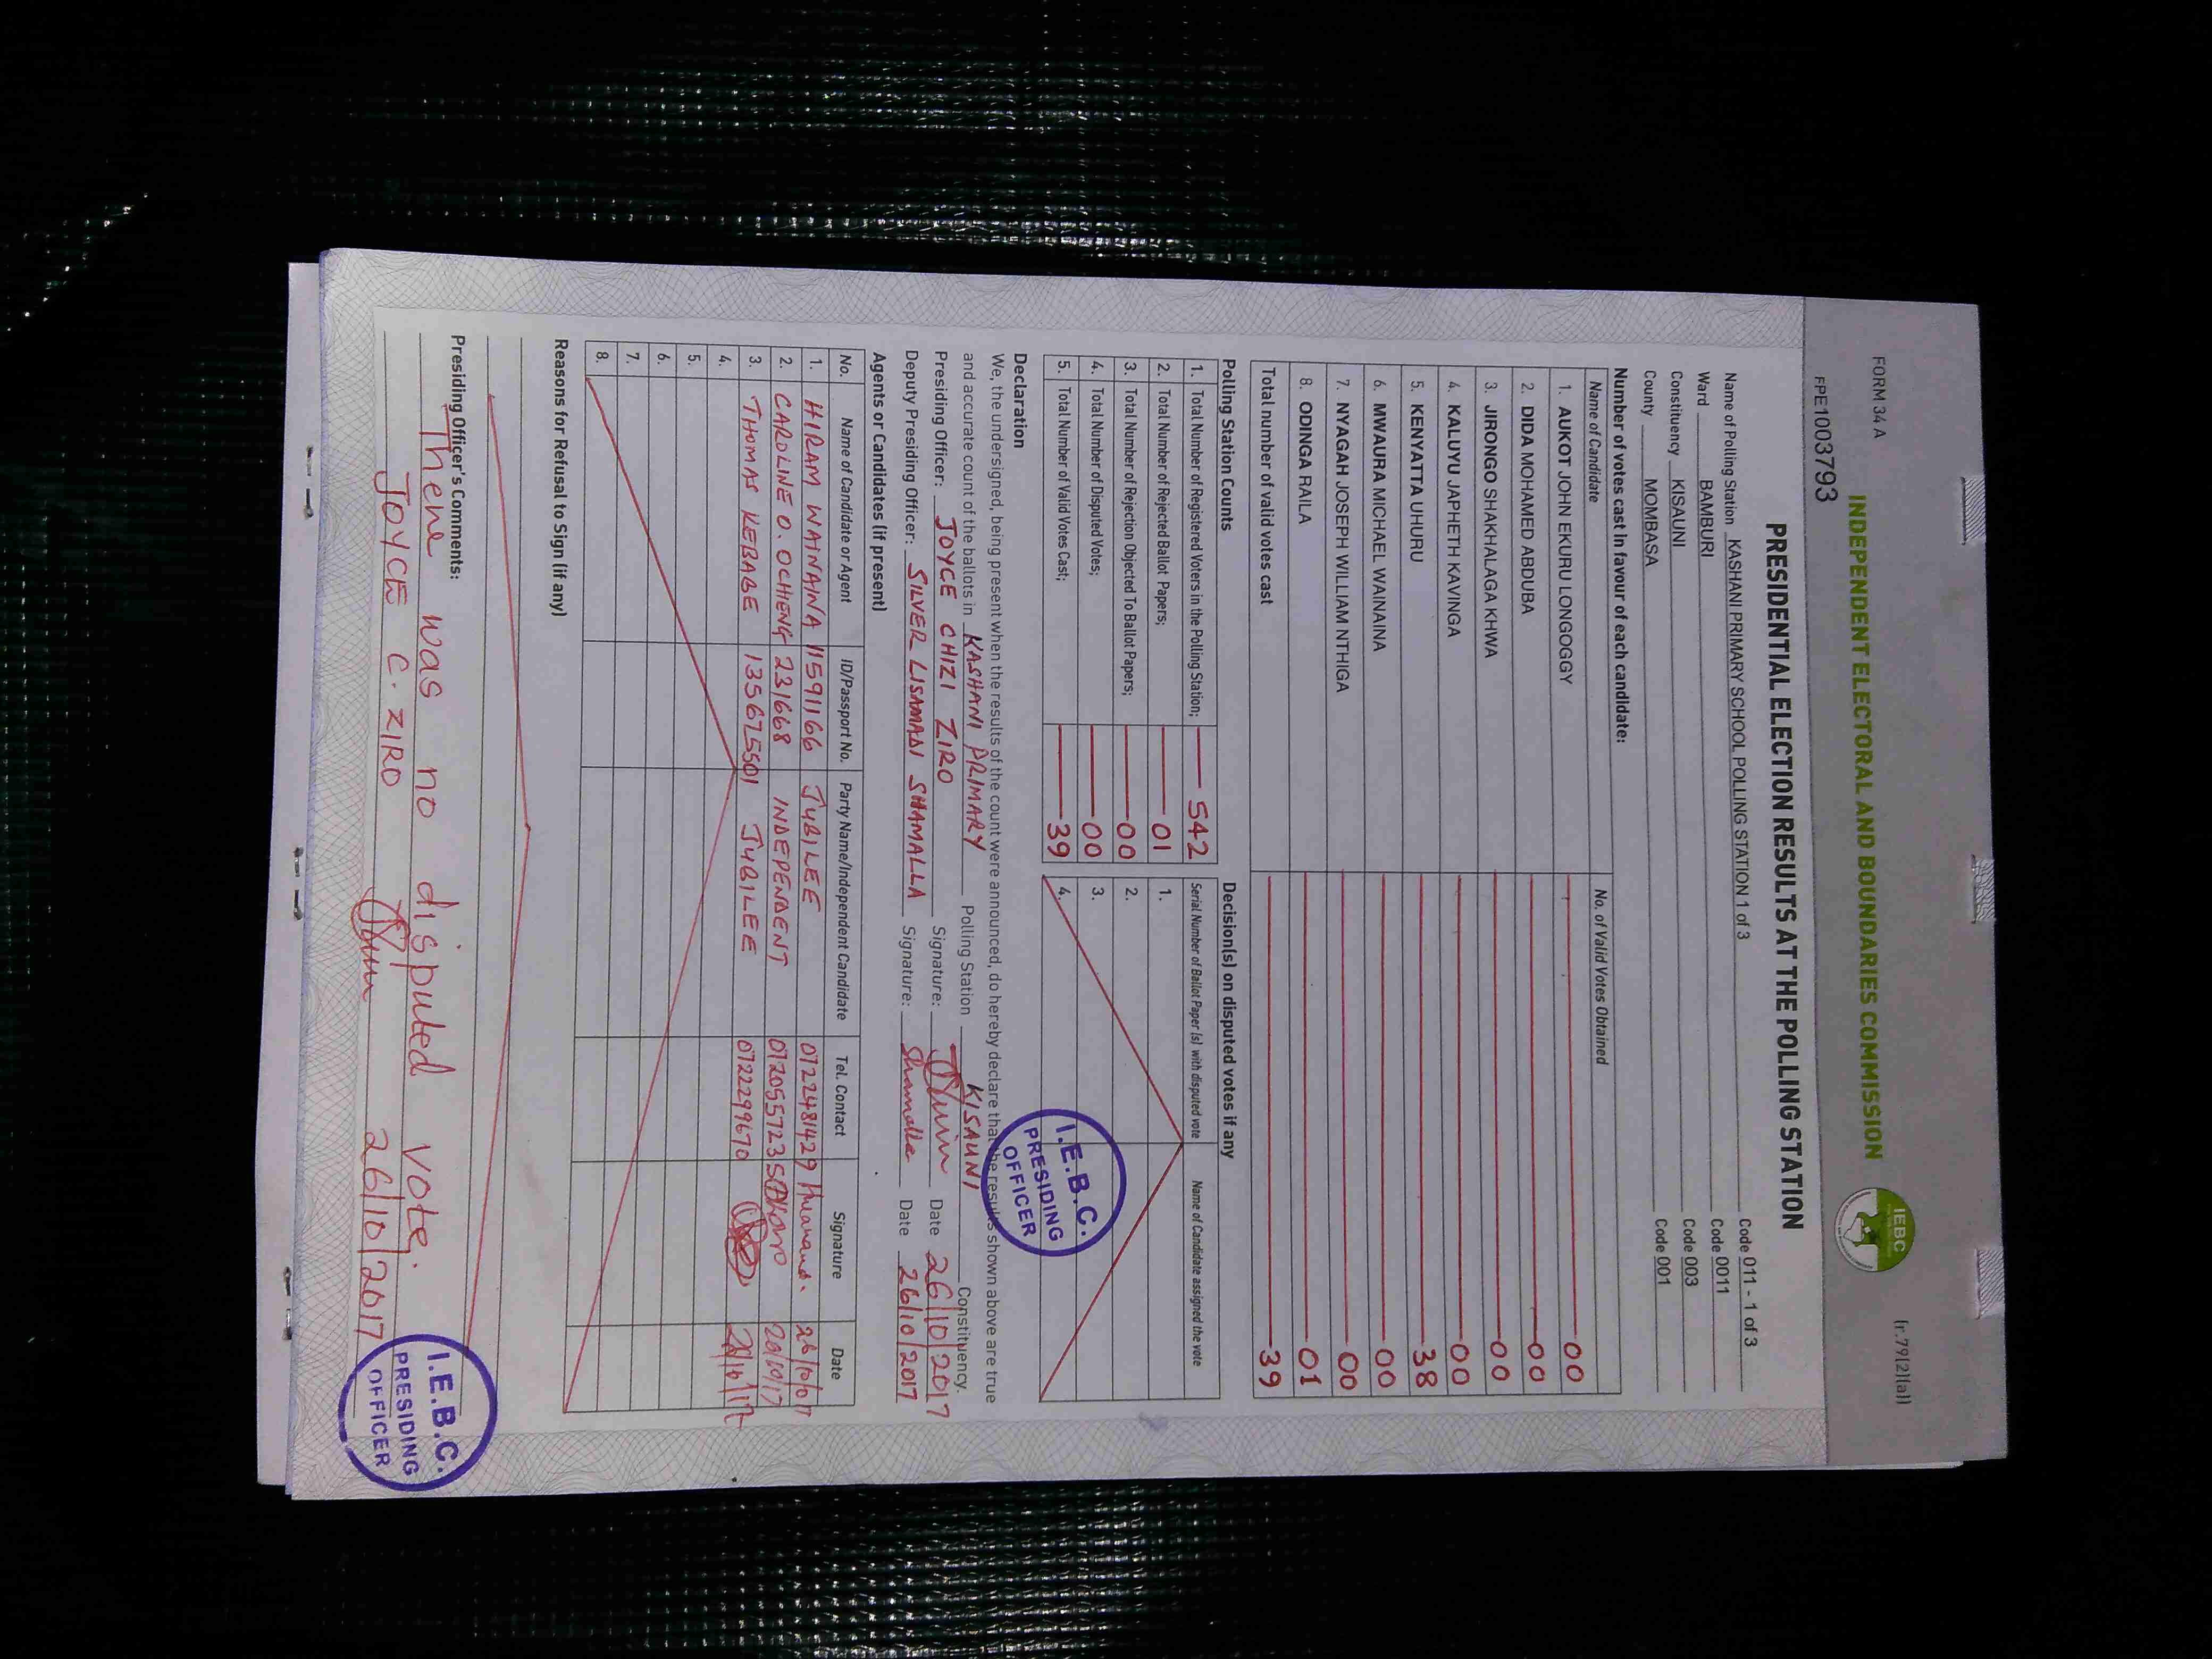 FORM 34 A
(r.79(2)(a))
INDEPENDENT ELECTORAL AND BOUNDARIES COMMISSION
IEBC
FPE1003793
PRESIDENTIAL ELECTION RESULTS AT THE POLLING STATION
Name of Polling Station KASHANI PRIMARY SCHOOL POLLING STATION 1 of 3 Code 011 - 1 of 3
Ward BAMBURI Code 0011
Constituency KISAUNI Code 003
County MOMBASA Code 001
Number of votes cast in favour of each candidate:
Name of Candidate No. of Valid Votes Obtained
1. AUKOT JOHN EKURU LONGOGGY 00
2. DIDA MOHAMED ABDUBA 00
3. JIRONGO SHAKHALAGA KHWA 00
4. KALUYU JAPHETH KAVINGA 00
5. KENYATTA UHURU 38
6. MWAURA MICHAEL WAINAINA 00
7. NYAGAH JOSEPH WILLIAM NTHIGA 00
8. ODINGA RAILA 01
Total number of valid votes cast 39
Polling Station Counts
1. Total Number of Registered Voters in the Polling Station; 542
2. Total Number of Rejected Ballot Papers; 01
3. Total Number of Rejection Objected To Ballot Papers; 00
4. Total Number of Disputed Votes; 00
5. Total Number of Valid Votes Cast; 39
Decision(s) on disputed votes if any
Serial Number of Ballot Paper (s) with disputed vote Name of Candidate assigned the vote
1.
2.
3.
4.
I.E.B.C.
PRESIDING
OFFICER
Declaration
We, the undersigned, being present when the results of the count were announced, do hereby declare that the results shown above are true
and accurate count of the ballots in KASHANI PRIMARY Polling Station KISAUNI Constituency.
Presiding Officer: JOYCE CHIZI ZIRO Signature: Date 26/10/2017
Deputy Presiding Officer: SILVER LISAMADI SHAMALLA Signature: Shamalla Date 26/10/2017
Agents or Candidates (if present)
No. Name of Candidate or Agent ID/Passport No. Party Name/Independent Candidate Tel. Contact Signature Date
1. HIRAM WAINAINA 11591166 JUBILEE 0722481429 26/10/017
2. CAROLINE O. OCHIENG 231668 INDEPENDENT 0720557235
3. THOMAS KEBABE 135675501 JUBILEE 0722299670
4.
5.
6.
7.
8.
Reasons for Refusal to Sign (if any)
Presiding Officer's Comments:
There was no disputed vote.
JOYCE C. ZIRO 26/10/2017
I.E.B.C.
PRESIDING
OFFICER